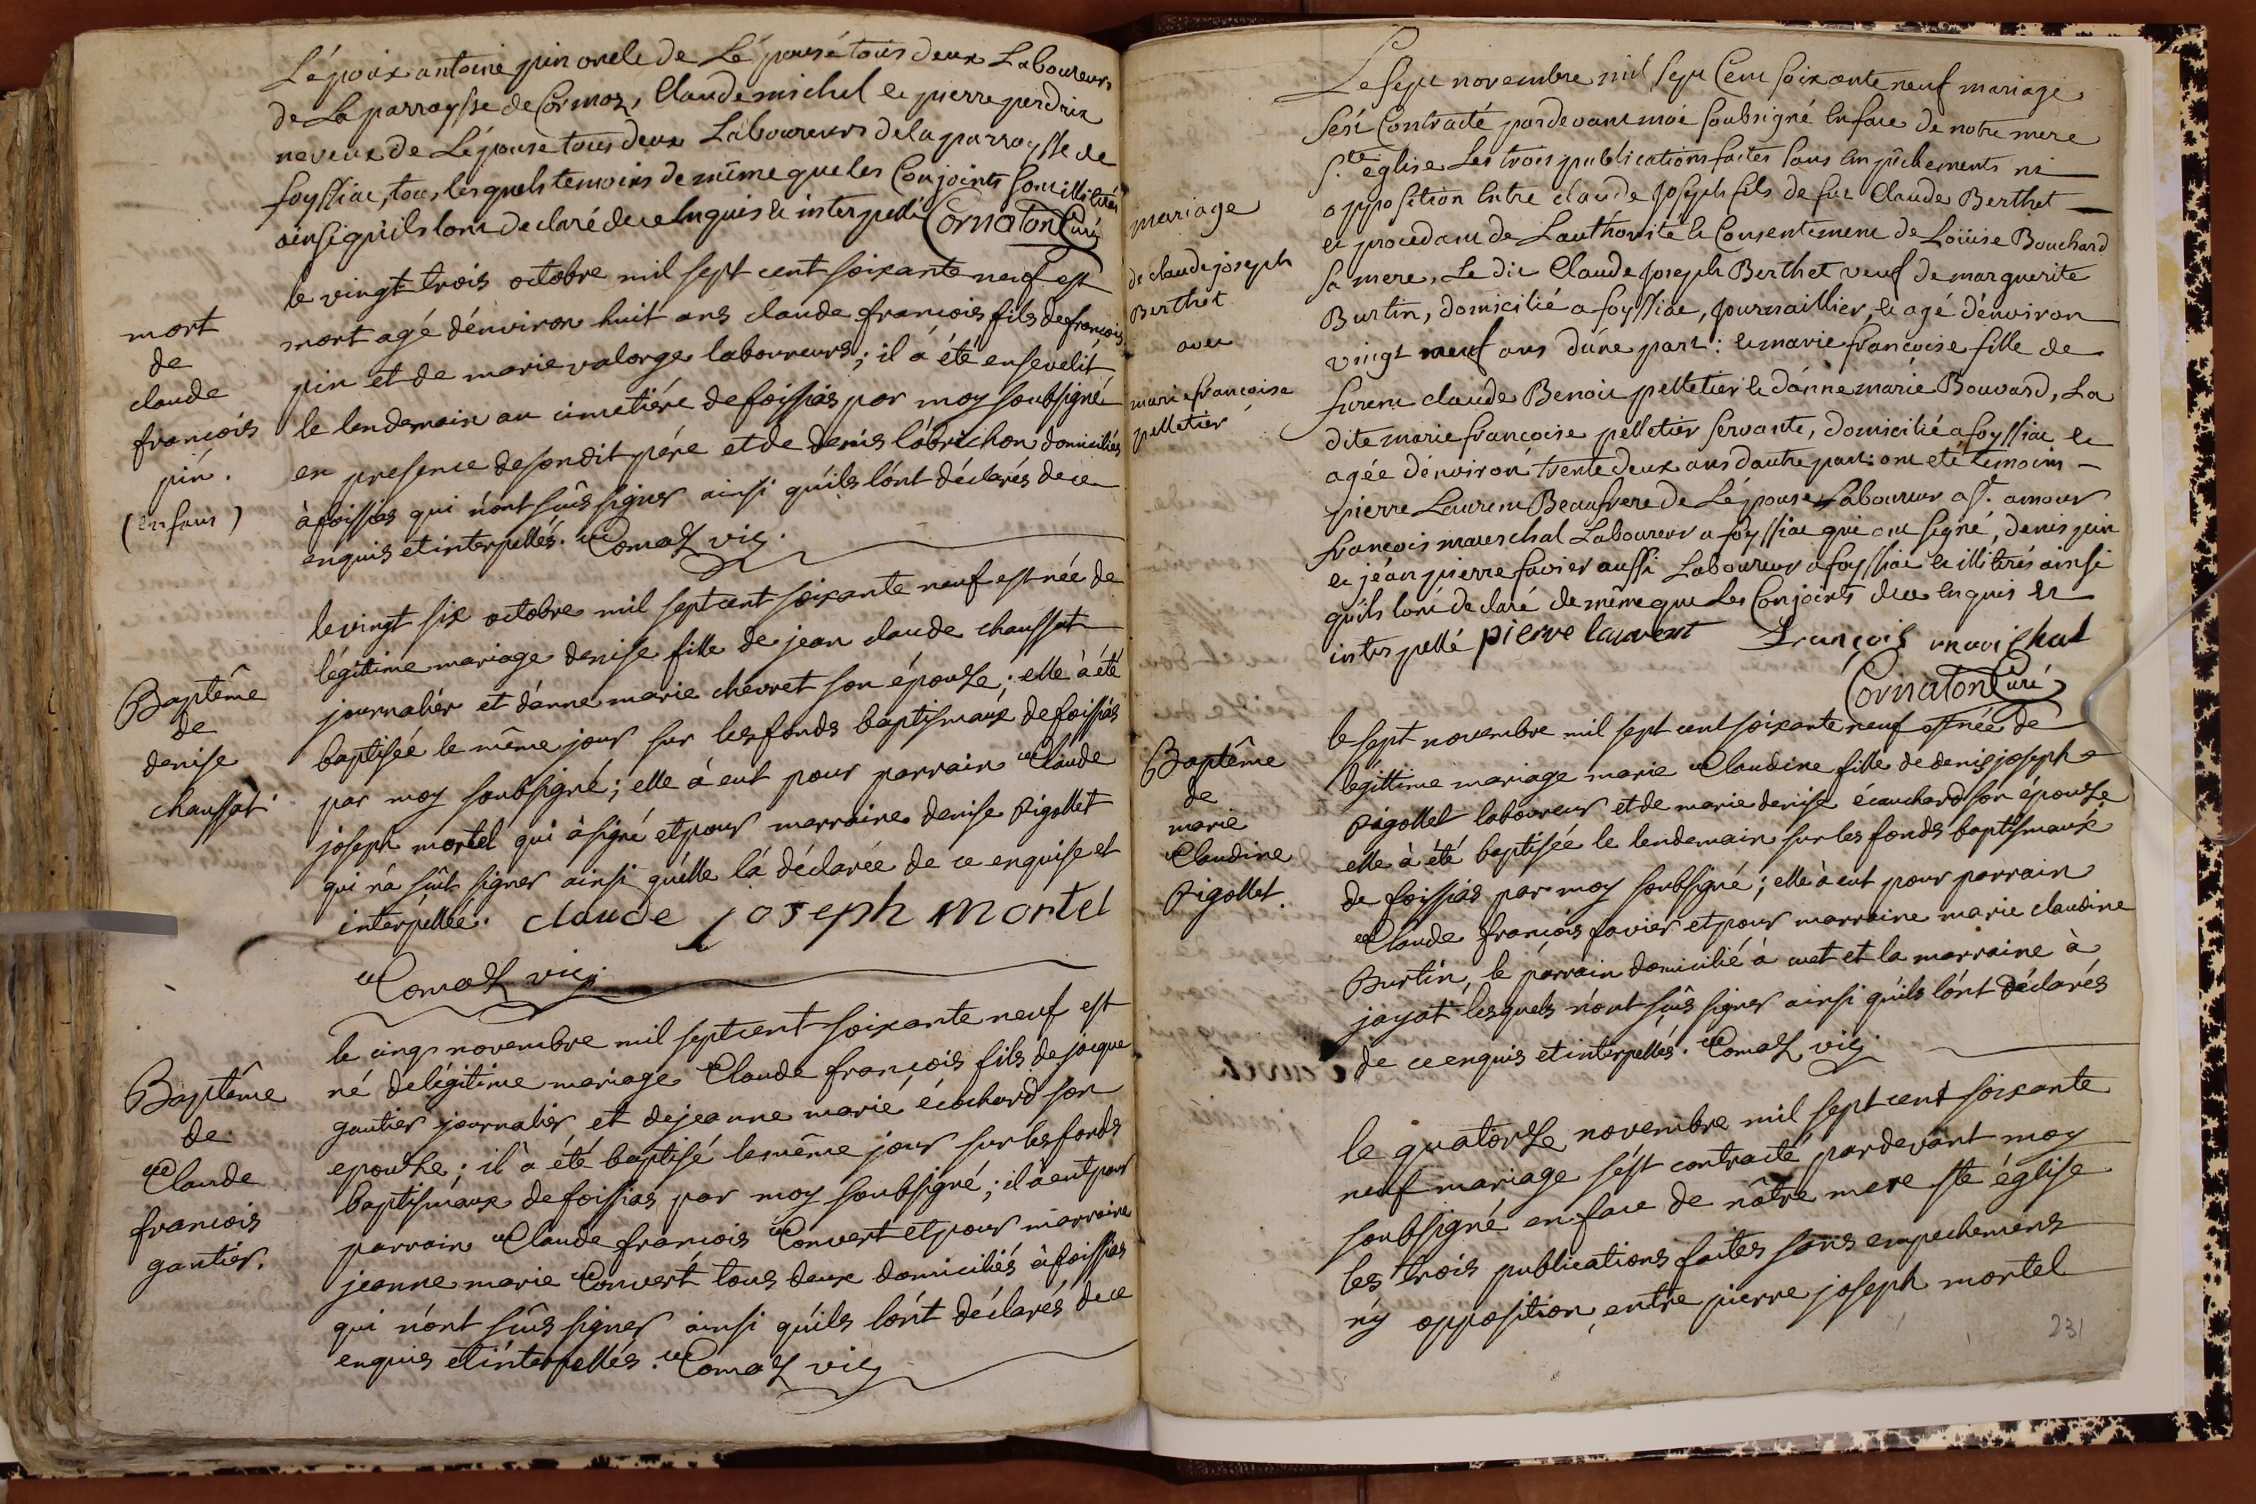 Lépoux antoine pin oncle de Lépouse tous deux Laboureurs
de La parroysse de Cormoz, Claude michel et pierre perdrix
neveux de Lépouse tous deux Laboureurs de la parroysse de
foyssiac, tous lesquels temoins de même que les Conjoints sont illitirés
ainsi qu'ils lont declaré de ce Enquis et interpellé Cornaton Curé
mort
de
claude
françois
pin.
(Enfant)
le vingt trois octobre mil sept cent soixante neuf est
mort agé d'énviron huit ans claude françois fils de francois
pin et de marie valorge laboureurs; il a été ensevelit
le lendemain au cimetiére de foissias par moy soubsigné
en presence de son dit pére et de denis labrichon domiciliés
à foissias qui n'ont sûs signer ainsi qu'ils l'ont déclarés de ce
enquis et interpellés. Comaz vic.
Baptême
de
denise
chaussat
le vingt six octobre mil sept cent soixante neuf est née de
légittime mariage denise fille de jean claude chaussat
journalier et d'anne marie chevret son épouze; elle à été
baptisée le même jour sur les fonds baptismaux de foissias
par moy soubsigné; elle à eut pour parrain Claude
joseph mortel qui à signé et pour marraine denise Pigollet
qui n'a sûit signer ainsi qu'elle l'a déclarée de ce enquise et
interpellée. claude joseph mortel
Comaz vic.
Baptême
de
Claude
francois
gautier.
le cinq novembre mil sept cent soixante neuf est
né de légitime mariage Claude françois fils de jacque
gautier journalier et de jeanne marie écochard son
epouse; il a été baptisé le même jour sur les fonds
baptismaux de foissias par moy soubsigné; il à eut pour
parrain Claude francois Convert et pour marraine
jeanne marie Convert tous deux domiciliés à foissias
qui n'ont sûs signer ainsi qu'ils l'ont déclarés de ce
enquis et interpellés. Comaz vic
mariage
de claude joseph
Berthet
avec
marie francoise
pelletier
Le sept novembre mil sept Cent soixante neuf mariage
sest Contracté pardevant moi soubsigné En face de notre mere
Ste église Les trois publications faites sans Empêchements ni
opposition Entre claude joseph fils de fut Claude Berthet
et procedant de Lauthorité et Consentement de Loüise Bouchard
sa mere, Le dit Claude Joseph Berthet veuf de marguerite
Burtin, domicilié a foyssiac, journaillier, et agé d'énviron
vingt neuf ans d'une part: et marie françoise fille de
furent claude Benoit pelletier et d'anne marie Bouvard, La
dite marie francoise pelletier servante, domicilié a foyssiac et
agée d'énviron trente deux ans dautre part: ont eté temoins
pierre Laurent Beaufrere de Lépouse Laboureur a St. amour
françois mareschal Laboureur a foyssiac qui ont signé, denis pin
et jéan pierre favier aussi Laboureur a foyssiac et illitirés ainsi
qu'ils lont declaré de même que Les Conjoints de ce Enquis et
interpellé pierre laurent François marichal
Cornaton Curé
Baptême
de
marie
Claudine
Pigollet.
le sept novembre mil sept cent soixante neuf est née de
légittime mariage marie Claudine fille de denis joseph
Pigollet laboureur et de marie denise écauchard son épouse
elle à été baptisée le lendemain sur les fonds baptismaux
de foissias par moy soubsigné; elle à eut pour parrain
Claude françois favier et pour marraine marie claudine
Burtin, le parrain domicilié à cuet et la marraine à
jayat lesquels n'ont sûs signer ainsi qu'ils l'ont déclarés
de ce enquis et interpellés. Comaz vic.
le quatorze novembre mil sept cent soixante
neuf mariage s'ést contracté pardevant moy
soubsigné en face de nôtre mere ste église
les trois publications faites sans empechemens
n'y opposition, entre pierre joseph mortel
231